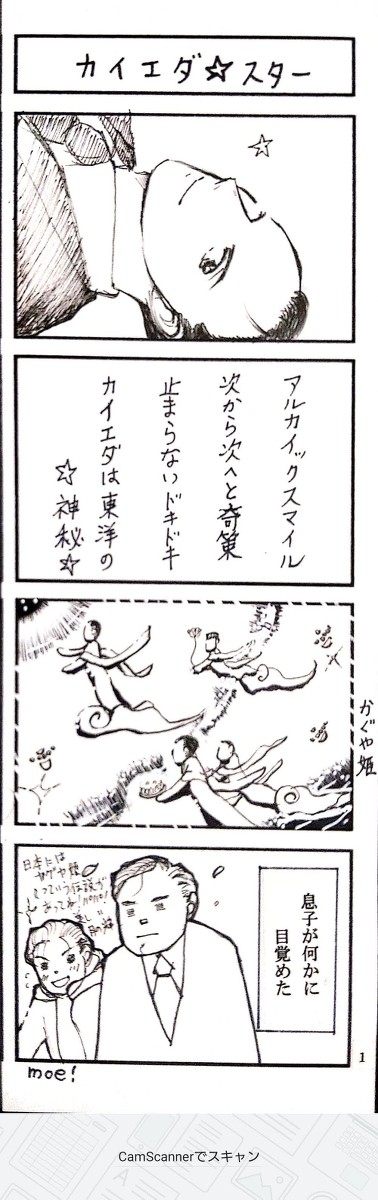 カイエダ☆スター
☆
アルカイックスマイル
次から次へと奇策
止まらないドキドキ
カイエダは東洋の
☆神秘☆
かぐや姫
息子が何かに
目覚めた
日本には
カグヤ姫
っていう伝説が
あってね!
moe!
1
CamScannerでスキャン